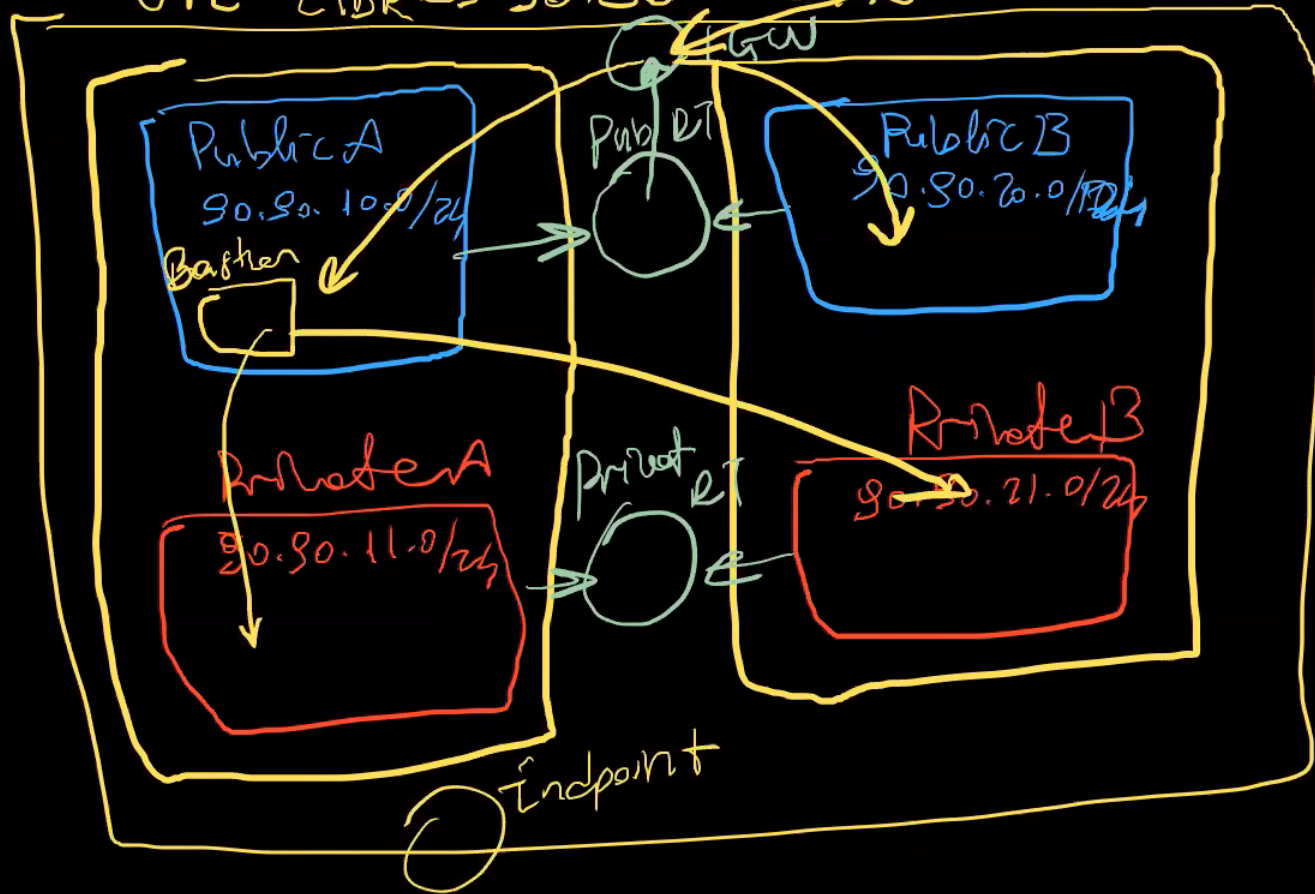 CIDR
IGW
Public A
90.90.10.0/24
Pub RT
Public B
90.90.20.0/24
Bastion
Private A
90.90.11.0/24
Privat RT
Private B
90.90.21.0/24
Endpoint